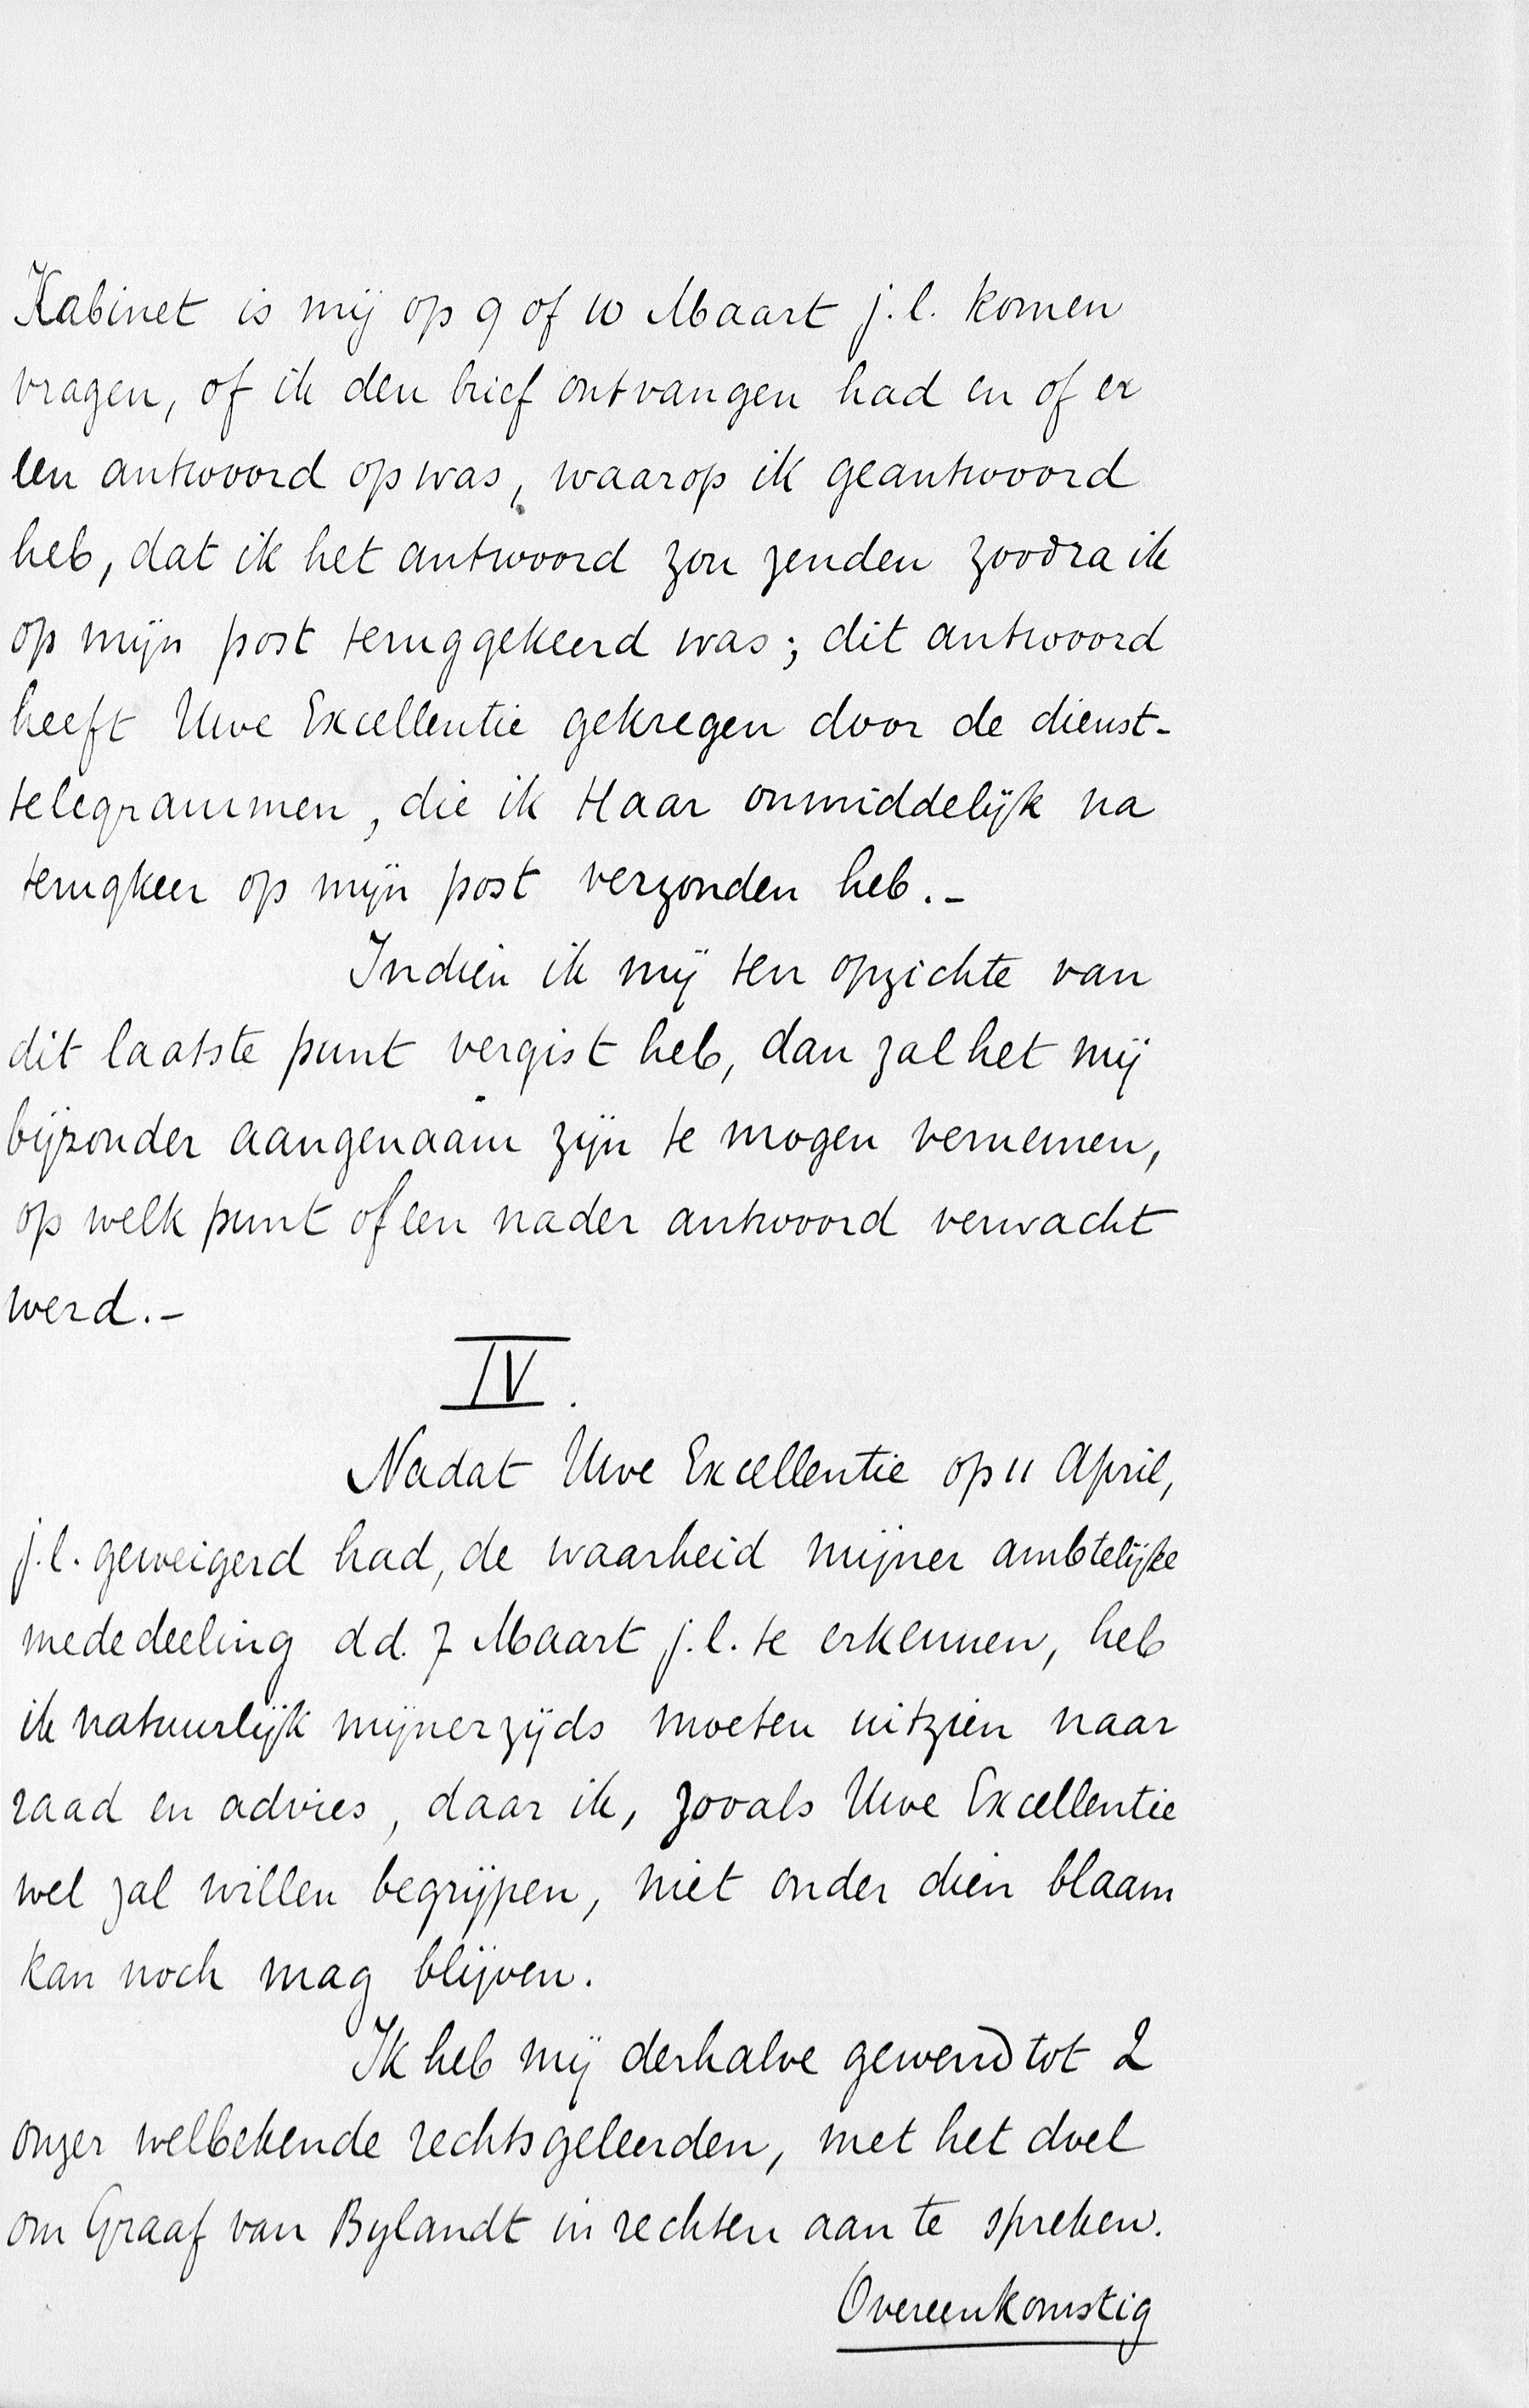 Kabinet is mij op 9 of 10 Maart j.l. komen
vragen, of ik den brief ontvangen had en of er
een antwoord op was, waarop ik geantwoord
heb, dat ik het antwoord zou zenden zoodra ik
op mijn post teruggekeerd was; dit antwoord
heeft Uwe Excellentie gekregen door de dienst-
telegrammen, die ik Haar onmiddelijk na
terugkeer op mijn post verzonden heb.-
Indien ik mij ten opzichte van
dit laatste punt vergist heb, dan zal het mij
bijzonder aangenaam zijn te mogen vernemen,
op welk punt of een nader antwoord verwacht
werd.-
IV.
Nadat Uwe Excellentie op 11 April,
j.l. geweigerd had, de waarheid mijner ambtelijke
mededeeling d.d. 7 Maart j.l. te erkennen, heb
ik natuurlijk mijnerzijds moeten uitzien naar
raad en advies, daar ik, zooals Uwe Excellentie
wel zal willen begrijpen, niet onder dien blaam
kan noch mag blijven.
Ik heb mij derhalve gewend tot 2
onzer welbekende rechtsgeleerden, met het doel
om Graaf van Bylandt in rechten aan te spreken.
Overeenkomstig